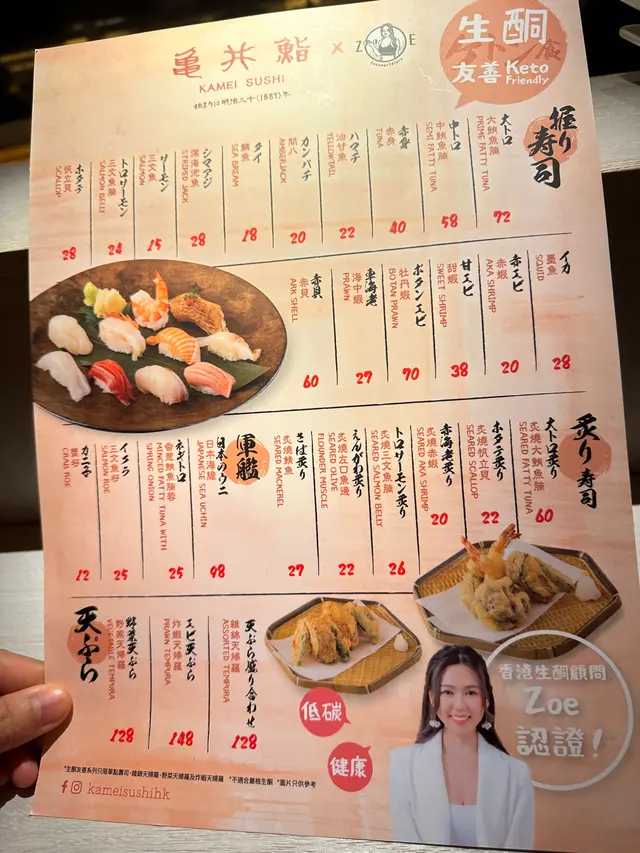 亀井鮨 x ZOE
KAMEI SUSHI
始まりは明治二十(1887)年
生酮
友善 Keto
Friendly
握り寿司
大トロ
大鮪魚腩
PRIME FATTY TUNA
72
中トロ
中鮪魚腩
SEMI FATTY TUNA
58
赤身
赤身
TUNA
40
ハマチ
油甘魚
YELLOWTAIL
22
カンパチ
間八
AMBERJACK
20
タイ
鯛魚
SEA BREAM
18
シマアジ
深海池魚
STRIPED JACK
28
サーモン
三文魚
SALMON
15
トロサーモン
三文魚腩
SALMON BELLY
24
ホタテ
帆立貝
SCALLOP
28
イカ
墨魚
SQUID
28
赤エビ
赤蝦
AKA SHRIMP
20
甘エビ
甜蝦
SWEET SHRIMP
38
ボタンエビ
牡丹蝦
BOTAN PRAWN
70
車海老
海中蝦
PRAWN
27
赤貝
赤貝
ARK SHELL
60
炙り寿司
大トロ炙り
炙燒大鮪魚腩
SEARED FATTY TUNA
60
ホタテ炙り
炙燒帆立貝
SEARED SCALLOP
22
赤海老炙り
炙燒赤蝦
SEARED AKA SHRIMP
20
トロサーモン炙り
炙燒三文魚腩
SEARED SALMON BELLY
26
えんがわ炙り
炙燒左口魚邊
SEARED OLIVE
FLOUNDER MUSCLE
22
さば炙り
炙燒鯖魚
SEARED MACKEREL
27
軍艦
日本のウニ
日本海膽
JAPANESE SEA URCHIN
98
ネギトロ
香蔥鮪魚腩蓉
MINCED FATTY TUNA WITH
SPRING ONION
25
イクラ
三文魚子
SALMON ROE
25
カニ子
蟹子
CRAB ROE
12
天ぷら
野菜天ぷら
野菜天婦羅
VEGETABLE TEMPURA
128
エビ天ぷら
炸蝦天婦羅
PRAWN TEMPURA
148
天ぷら盛り合わせ
雜錦天婦羅
ASSORTED TEMPURA
128
低碳
健康
香港生酮顧問
Zoe
認證!
*生酮友善系列只限單點壽司、雜錦天婦羅、野菜天婦羅及炸蝦天婦羅 *不適合嚴格生酮 *圖片只供參考
kameisushihk